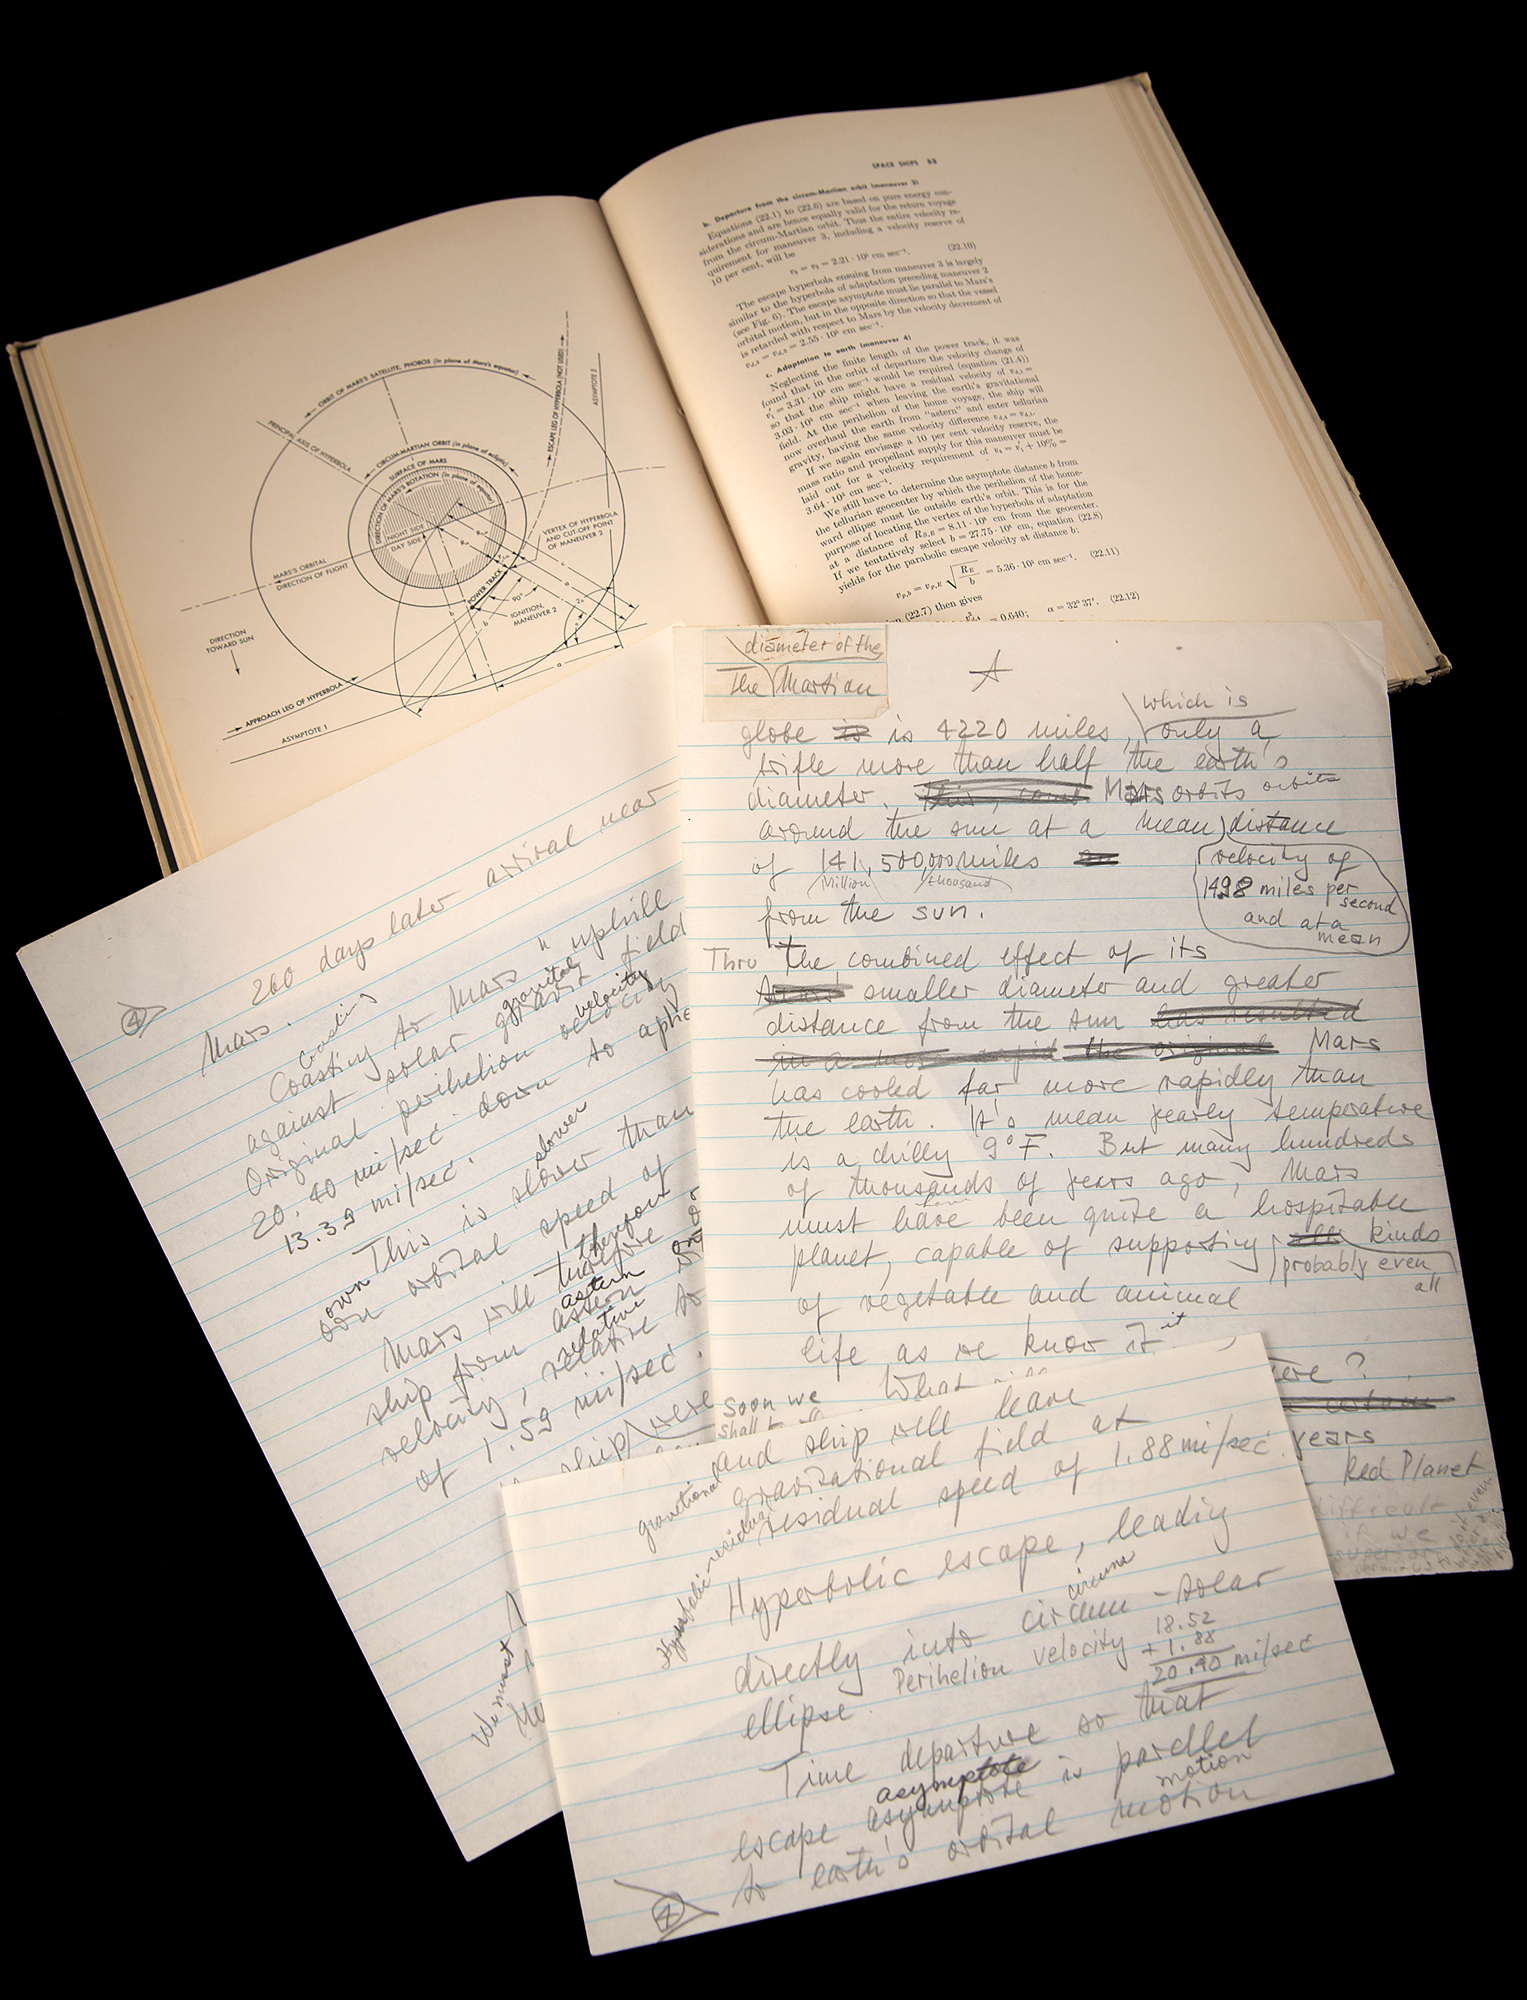 SPACE SHIPS 53
b. Departure from the circum-Martian orbit (maneuver 3)
Equations (22.1) to (22.6) are based on pure energy con-
siderations and are hence equally valid for the return voyage
from the circum-Martian orbit. Thus the entire velocity re-
quirement for maneuver 3, including a velocity reserve of
10 per cent, will be
v₃ = v₂ = 2.21 · 10⁵ cm sec⁻¹. (22.10)
The escape hyperbola ensuing from maneuver 3 is largely
similar to the hyperbola of adaptation preceding maneuver 2
(see Fig. 6). The escape asymptote must lie parallel to Mars's
orbital motion, but in the opposite direction so that the vessel
is retarded with respect to Mars by the velocity decrement of
= 2.55 · 10⁵ cm sec⁻¹.
c. Adaptation to earth (maneuver 4)
Neglecting the finite length of the power track, it was
found that in the orbit of departure the velocity change of
= 3.31 · 10⁵ cm sec⁻¹ would be required (equation (21.4))
so that the ship might have a residual velocity of
3.03 · 10⁵ cm sec⁻¹ when leaving the earth's gravitational
field. At the perihelion of the home voyage, the ship will
now overhaul the earth from "astern" and enter tellurian
gravity, having the same velocity difference
If we again envisage a 10 per cent velocity reserve, the
mass ratio and propellant supply for this maneuver must be
laid out for a velocity requirement of v₄ = v₁′ + 10% =
3.64 · 10⁵ cm sec⁻¹.
We still have to determine the asymptote distance b from
the tellurian geocenter by which the perihelion of the home-
ward ellipse must lie outside earth's orbit. This is for the
purpose of locating the vertex of the hyperbola of adaptation
at a distance of = 8.11 · 10⁸ cm from the geocenter.
If we tentatively select b = 27.75 · 10⁸ cm, equation (22.8)
yields for the parabolic escape velocity at distance b:
= 5.36 · 10⁵ cm sec⁻¹. (22.11)
(22.7) then gives
= 0.640; α = 32° 37′. (22.12)
ORBIT OF MARS'S SATELLITE, PHOBOS (in plane of Mars's equator)
PRINCIPAL AXIS OF HYPERBOLA
CIRCUM-MARTIAN ORBIT (in plane of ecliptic)
SURFACE OF MARS
DIRECTION OF MARS'S ROTATION (in plane of equator)
NIGHT SIDE
DAY SIDE
ESCAPE LEG OF HYPERBOLA (NOT USED)
ASYMPTOTE 2
VERTEX OF HYPERBOLA
AND CUT-OFF POINT
OF MANEUVER 2
MARS'S ORBITAL
DIRECTION OF FLIGHT
POWER TRACK
90°
IGNITION,
MANEUVER 2
DIRECTION
TOWARD SUN
APPROACH LEG OF HYPERBOLA
ASYMPTOTE 1
diameter of the
The Martian
A
which is
globe is is 4220 miles, only a
trifle more than half the earth's
diameter. Mars orbits orbits
around the sun at a mean distance
of 141,500,000 miles
Million thousand
velocity of
14.98 miles per
second
and at a
mean
from the sun.
Thru the combined effect of its
smaller diameter and greater
distance from the sun has resulted
in a more rapid the original Mars
has cooled far more rapidly than
the earth. It's mean yearly temperature
is a chilly 9° F. But many hundreds
of thousands of years ago, Mars
must have been quite a hospitable
planet, capable of supporting all kinds
probably even
all
of vegetable and animal
life as we know it it
Soon we What ere?
shall
years
Red Planet
difficult
if we
superior
4
260 days later arrival near
Mars.
coasting
Coasting to Mars "uphill
gravital
against solar gravit field
velocity
Original perihelion velocity
20.40 mi/sec down to aphe
13.39 mi/sec.
slower
This is slower than
own
own orbital speed of
therefore
Mars will therefore
astern
ship from astern
relative
velocity, relative to
of 1.59 mi/sec.
ship were
We must
and ship will leave
gravitional
gravitational field at
residual
residual speed of 1.88 mi/sec.
Hyperbolic
Hyperbolic escape, leading
circum
directly into circum-solar
ellipse. Perihelion velocity
18.52
+ 1.88
20.40 mi/sec
Time departure so that
asymptote
escape asymptote is parallel
motion
to earth's orbital motion
4